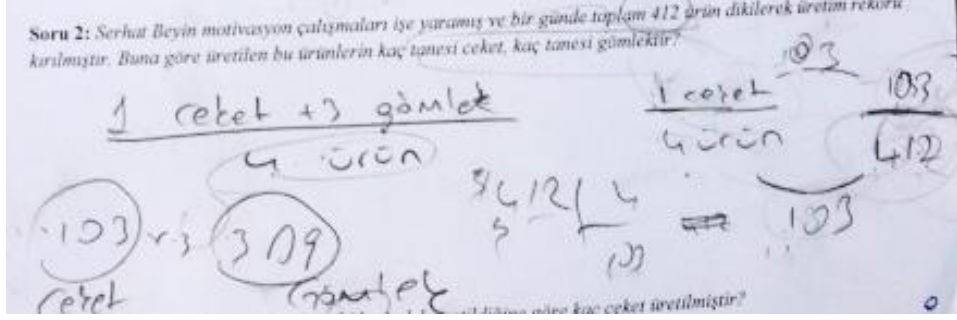 Soru 2: Serhat Beyin motivasyon çalışmaları işe yaramış ve bir günde toplam 412 ürün dikilerek üretim rekoru
kırılmıştır. Buna göre üretilen bu ürünlerin kaç tanesi ceket, kaç tanesi gömlektir?
1 ceket +3 gömlek
4 ürün
1 ceket
4 ürün
103
103
412
103
412 4
103
103 x 3 309
ceket Gömlek
göre kaç ceket üretilmiştir?